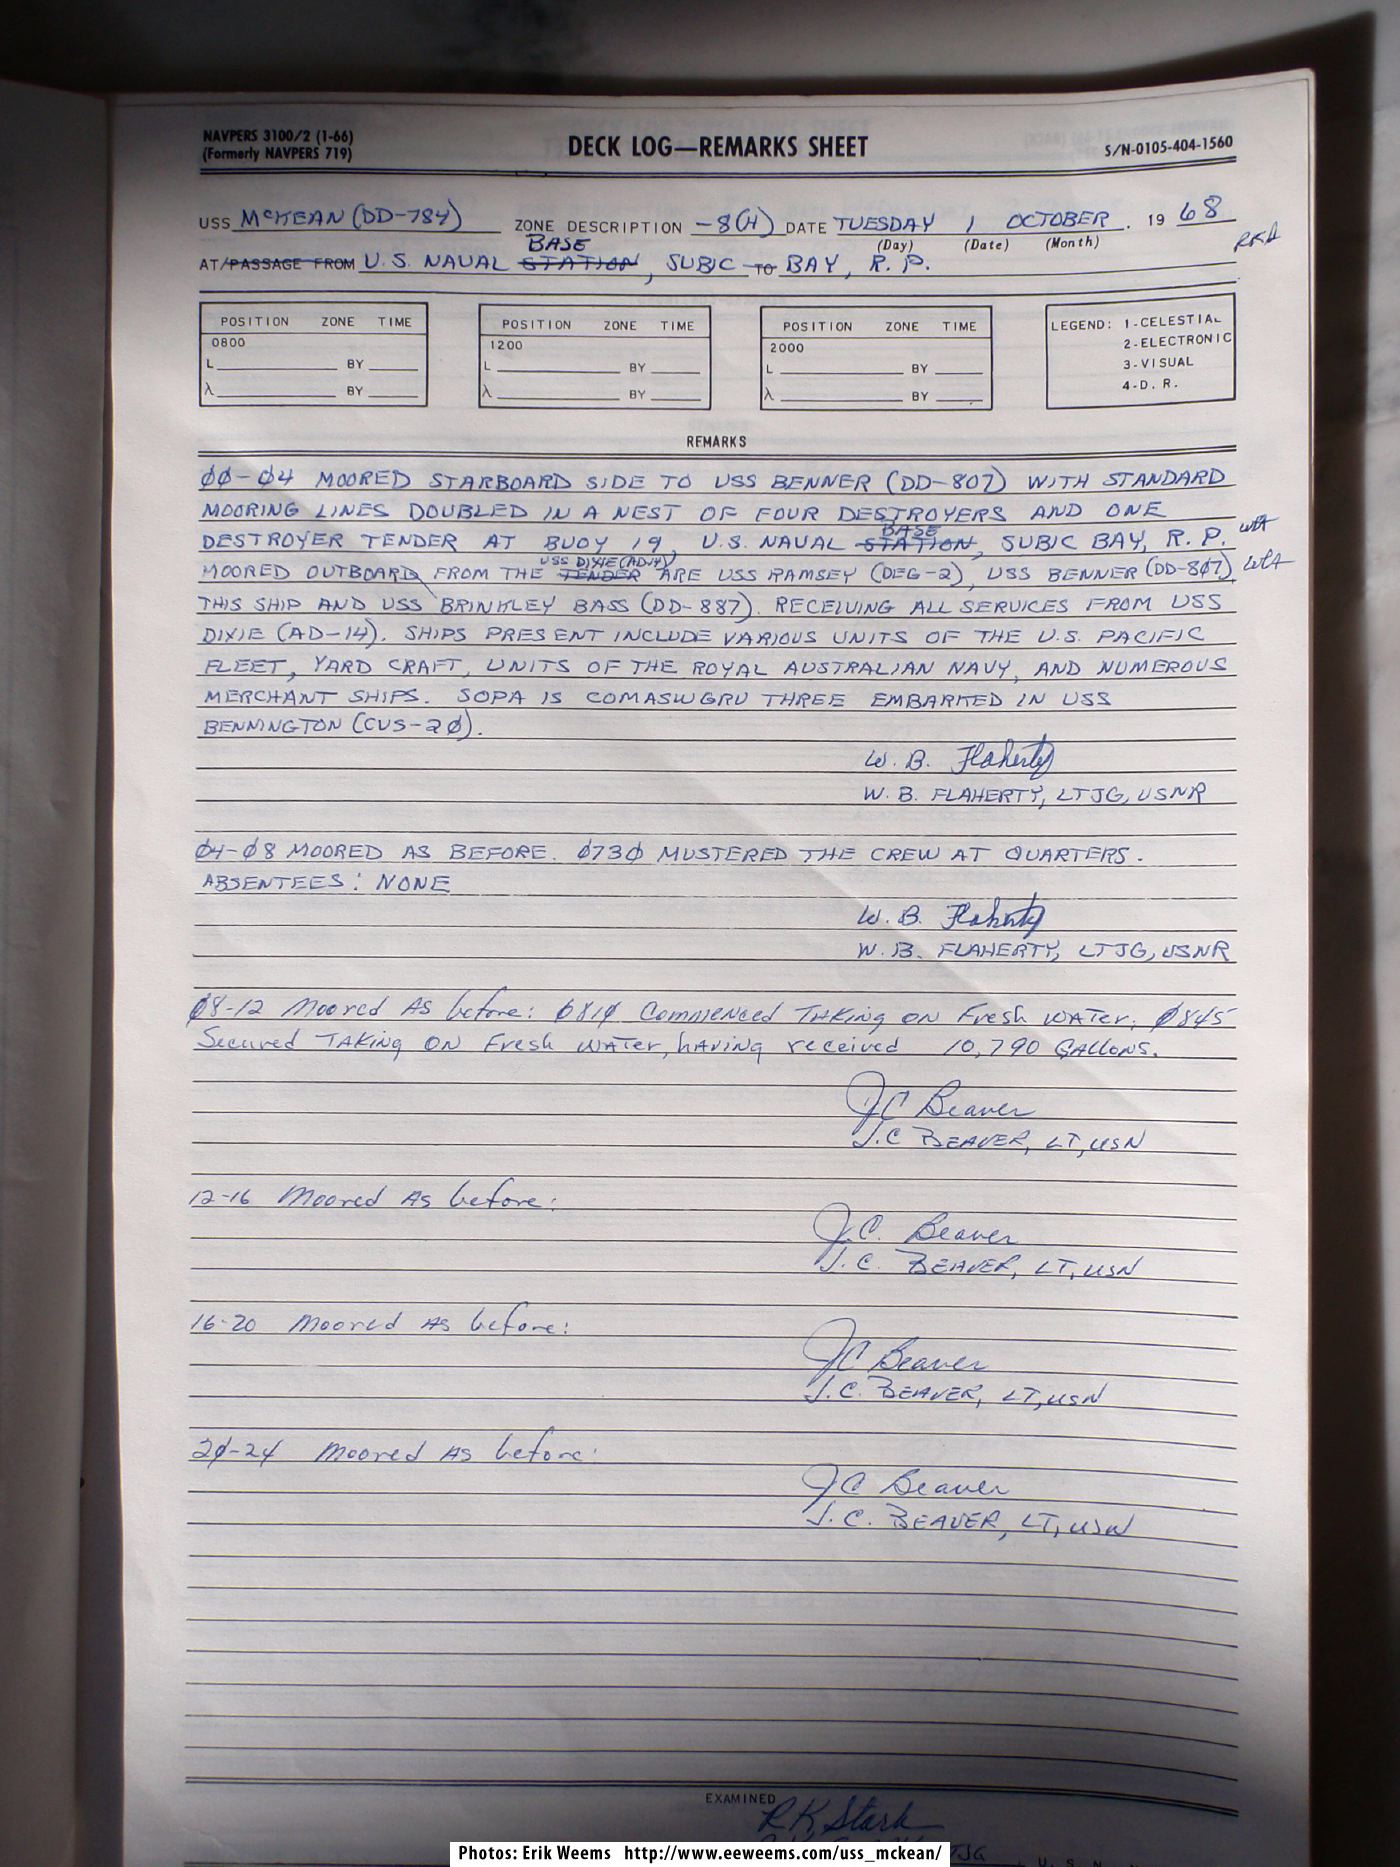 NAVPERS 3100/2 (1-66)
(Formerly NAVPERS 719)
DECK LOG—REMARKS SHEET
S/N-0105-404-1560
USS McKEAN (DD-784) ZONE DESCRIPTION -8(H) DATE TUESDAY 1 OCTOBER . 19 68
(Day) (Date) (Month)
BASE
AT/PASSAGE FROM U.S. NAVAL STATION, SUBIC TO BAY, R. P.
POSITION ZONE TIME
0800
L BY
λ BY
POSITION ZONE TIME
1200
L BY
λ BY
POSITION ZONE TIME
2000
L BY
λ BY
LEGEND: 1-CELESTIAL
2-ELECTRONIC
3-VISUAL
4-D. R.
REMARKS
ØØ-Ø4 MOORED STARBOARD SIDE TO USS BENNER (DD-807) WITH STANDARD
MOORING LINES DOUBLED IN A NEST OF FOUR DESTROYERS AND ONE
BASE
DESTROYER TENDER AT BUOY 19, U.S. NAVAL STATION, SUBIC BAY, R. P.
USS DIXIE (AD-14)
MOORED OUTBOARD FROM THE TENDER ARE USS RAMSEY (DEG-2), USS BENNER (DD-807)
THIS SHIP AND USS BRINKLEY BASS (DD-887). RECEIVING ALL SERVICES FROM USS
DIXIE (AD-14). SHIPS PRESENT INCLUDE VARIOUS UNITS OF THE U.S. PACIFIC
FLEET, YARD CRAFT, UNITS OF THE ROYAL AUSTRALIAN NAVY, AND NUMEROUS
MERCHANT SHIPS. SOPA IS COMASWGRU THREE EMBARKED IN USS
BENNINGTON (CVS-2Ø).
W. B. Flaherty
W. B. FLAHERTY, LTJG, USNR
Ø4-Ø8 MOORED AS BEFORE. Ø73Ø MUSTERED THE CREW AT QUARTERS.
ABSENTEES: NONE
W. B. Flaherty
W. B. FLAHERTY, LTJG, USNR
Ø8-12 Moored As before: Ø81Ø Commenced TAKing ON Fresh WATer; Ø845
Secured TAKing ON Fresh WATer, hAving received 10,790 GALLONS.
JC Beaver
J.C BEAVER, LT, USN
12-16 Moored As before:
J.C. Beaver
J. C. BEAVER, LT, USN
16-20 Moored As before:
JC Beaver
J.C. BEAVER, LT, USN
2Ø-24 Moored As before:
JC Beaver
J. C. BEAVER, LT, USN
EXAMINED
R K Stark
Photos: Erik Weems http://www.eeweems.com/uss_mckean/